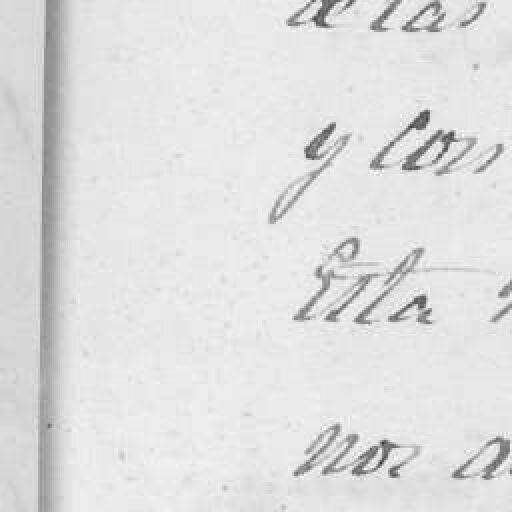 de las
y con
Esta
nor a